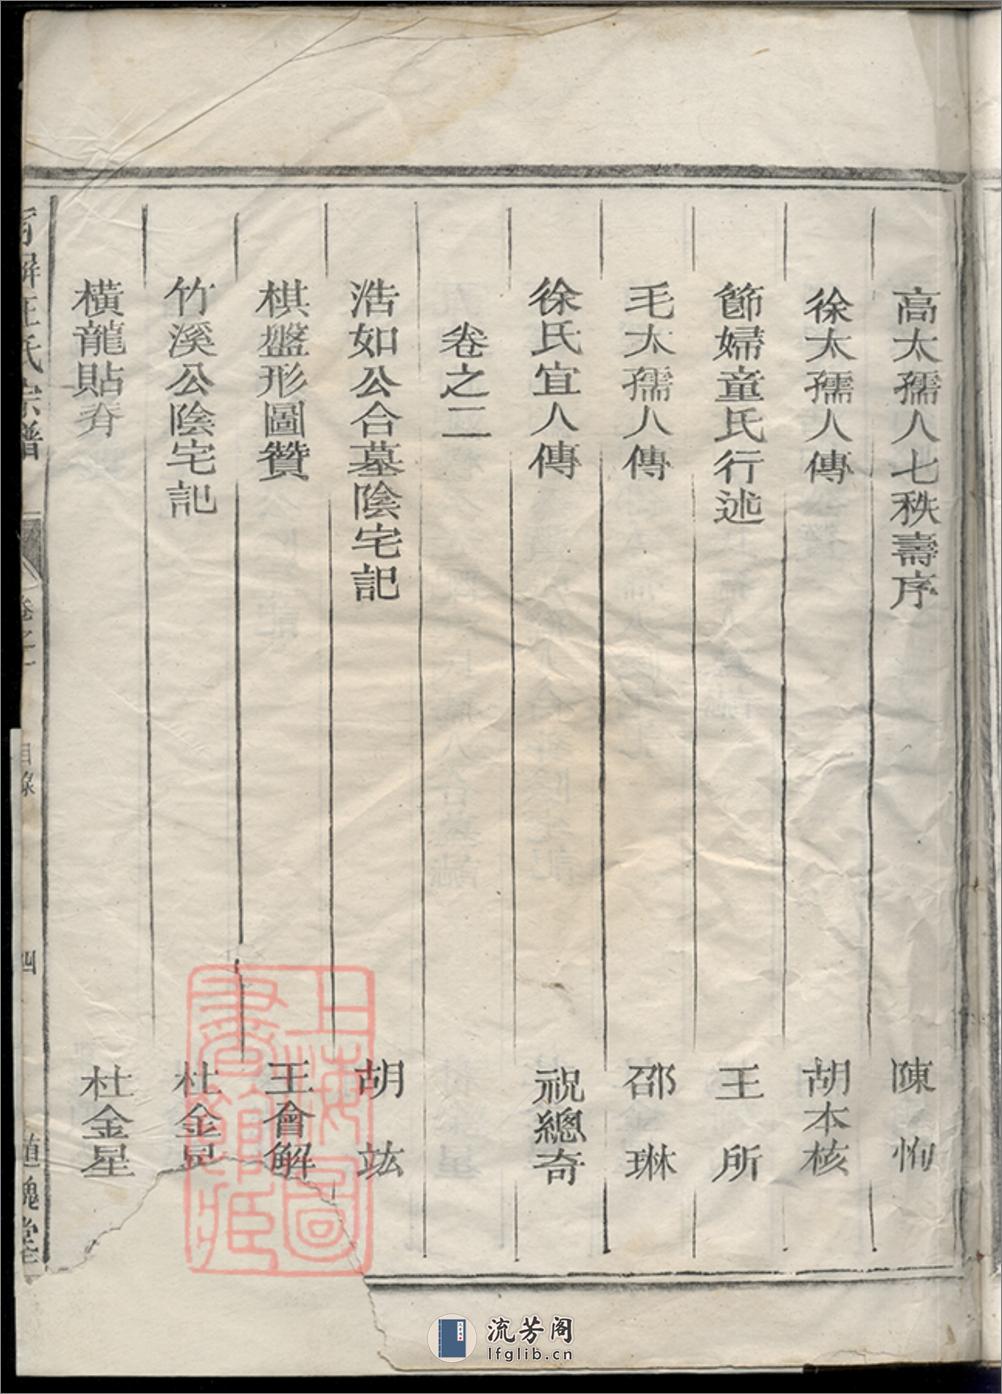 高太孺人七秩壽序 陳恂
徐太孺人傳 胡本核
節婦童氏行述 王所
毛太孺人傳 邵琳
徐氏宜人傳 祝總奇
卷之二
浩如公合墓陰宅記 胡竑
棋盤形圖贊 王會解
竹溪公陰宅記 杜金
橫龍貼脊 杜金星
屏汪氏宗譜 卷之 目錄 四 堂
上海圖書館藏
流芳阁
lfglib.cn